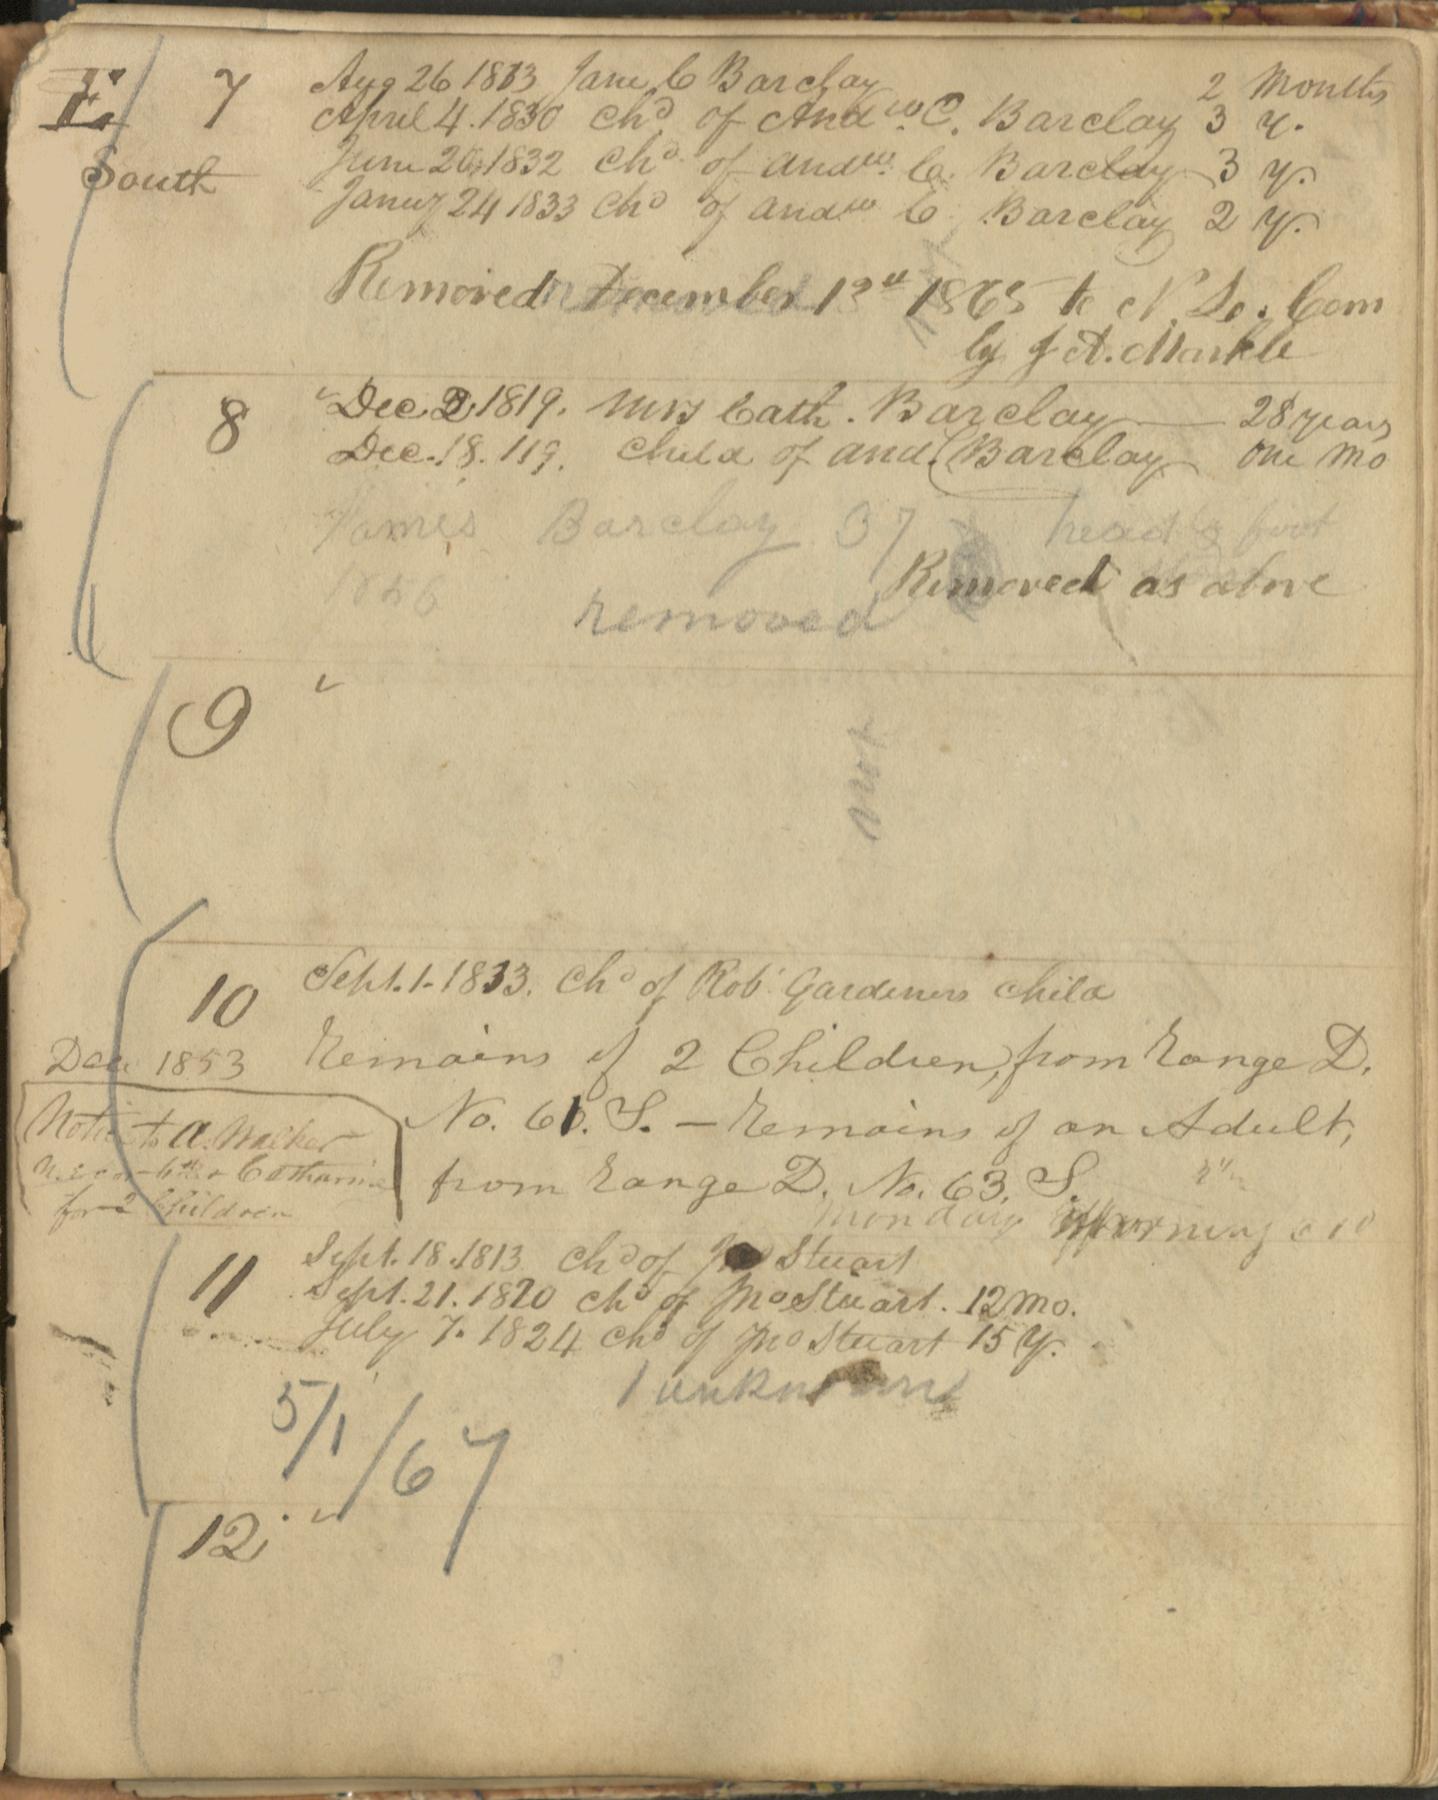 E 7 Aug 26 1813 Jane C Barclay 2 Months
April 4. 1830 Chd of Andw. C. Barclay 3 y.
South June 26, 1832 Chd. of Andw. C. Barclay 3 y.
Januy 24 1833 Chd of Andw C Barclay 2 y.
Removed December 13th 1865 to N. Lo. Cem
by J A. Markle
8 Dec. 2 1819. Mrs Cath. Barclay — 28 years
Dec. 18. 119. Child of And. Barclay One Mo
James Barclay 37 head & foot
1856 Removed as above
removed
9
not
10 Sept. 1. 1833. Chd of Rob Gardeners child
Dec 1853 Remains of 2 Children, from Range D.
No. 61. S. — Remains of an Adult,
Notice to A. Walker
from Range D. No. 63. S.
for 2 Children
Monday morning
11 Sept. 18. 1813 Chd of Stuart
Sept. 21. 1820 Chd of Jno Stuart. 12 Mo.
July 7. 1824 Chd of Jno Stuart 15 y.
1 unknown
5/1/67
12